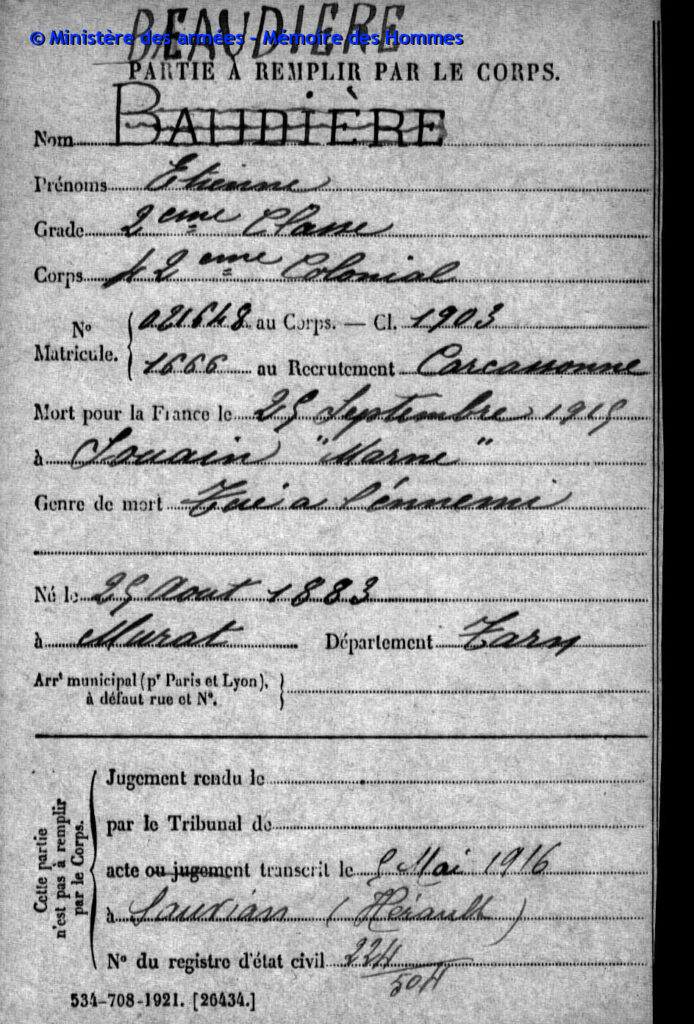 BEAUDIERE
© Ministère des armées - Mémoire des Hommes
PARTIE À REMPLIR PAR LE CORPS.
Nom BAUDIÈRE
Prénoms Etienne
Grade 2eme Classe
Corps 42eme Colonial
N° Matricule. { 021648 au Corps. — Cl. 1903
1666 au Recrutement Carcassonne
Mort pour la France le 25 Septembre 1915
à Souain "Marne"
Genre de mort Tué a l'énnemi
Né le 25 Aout 1883
à Murat Département Tarn
Arrt municipal (pr Paris et Lyon),
à défaut rue et N°.
Cette partie n'est pas à remplir par le Corps.
Jugement rendu le
par le Tribunal de
acte ou jugement transcrit le 5 Mai 1916
à Sauvian (Hérault)
N° du registre d'état civil 224
504
534-708-1921. [26434.]